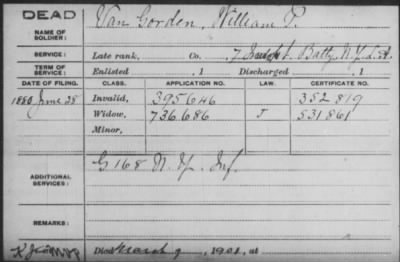 DEAD
NAME OF SOLDIER:
Van Gorden, William P.
SERVICE:
Late rank, Co. 7 Indpt. Batty, N.Y. L.A.
TERM OF SERVICE:
Enlisted , 1 Discharged , 1
DATE OF FILING. CLASS. APPLICATION NO. LAW. CERTIFICATE NO.
1880 June 28 Invalid, 395646 352819
Widow, 736686 J 531861
Minor,
ADDITIONAL SERVICES:
G 168 N.Y. Inf.
REMARKS:
Died March 9, 1901, at